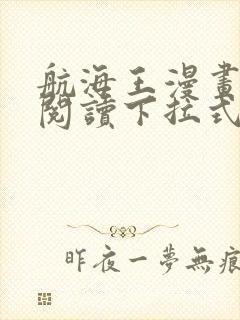 航海王漫畫
閱讀下拉式
昨夜一夢無痕